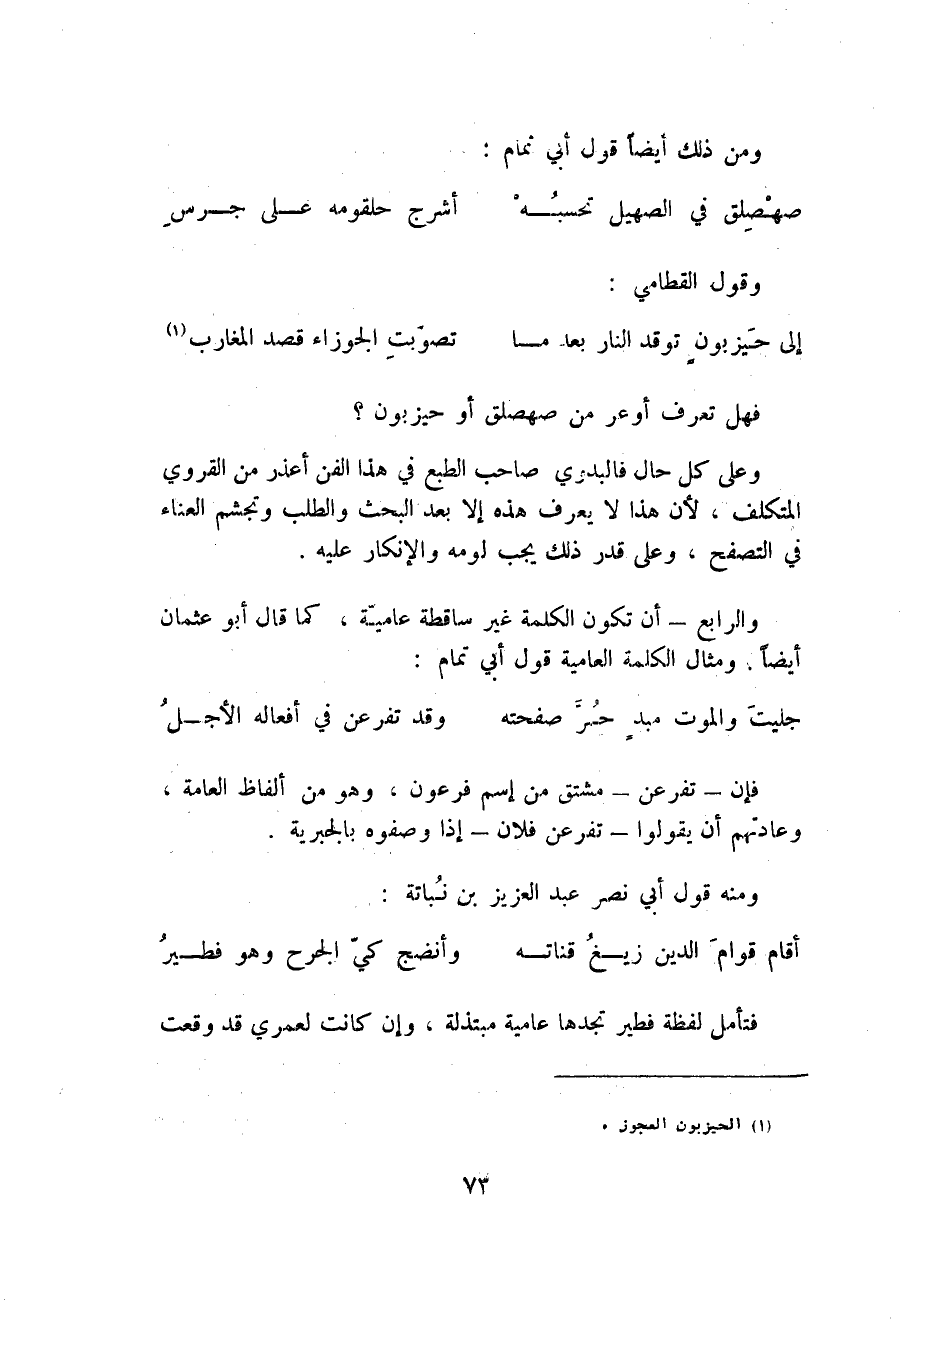 ومن ذلك أيضاً قول أبي تمام :
صهْصِلق في الصهيل تحسبُـــهْ    أشرج حلقومه عـــلى جـــرسٍ
وقول القطامي :
إلى حَيزبونٍ توقد النار بعد مـــا    تصوّبتِ الجوزاء قصد المغارب(١)
فهل تعرف أوعر من صهصلق أو حيزبون ؟
وعلى كل حال فالبدري صاحب الطبع في هذا الفن أعذر من القروي
المتكلف ، لأن هذا لا يعرف هذه إلا بعد البحث والطلب وتجشم العناء
في التصفح ، وعلى قدر ذلك يجب لومه والإنكار عليه .
والرابع – أن تكون الكلمة غير ساقطة عاميّة ، كما قال أبو عثمان
أيضاً . ومثال الكلمة العامية قول أبي تمام :
جليتَ والموت مبدٍ حُرَّ صفحته    وقد تفرعن في أفعاله الأجـــلُ
فإن – تفرعن – مشتق من إسم فرعون ، وهو من ألفاظ العامة ،
وعادتهم أن يقولوا – تفرعن فلان – إذا وصفوه بالجبرية .
ومنه قول أبي نصر عبد العزيز بن نُباتة :
أقام قوامَ الدين زيـــغُ قناتـــه    وأنضج كيّ الجرح وهو فطـــيرُ
فتأمل لفظة فطير تجدها عامية مبتذلة ، وإن كانت لعمري قد وقعت
(١) الحيزبون العجوز .
٧٣